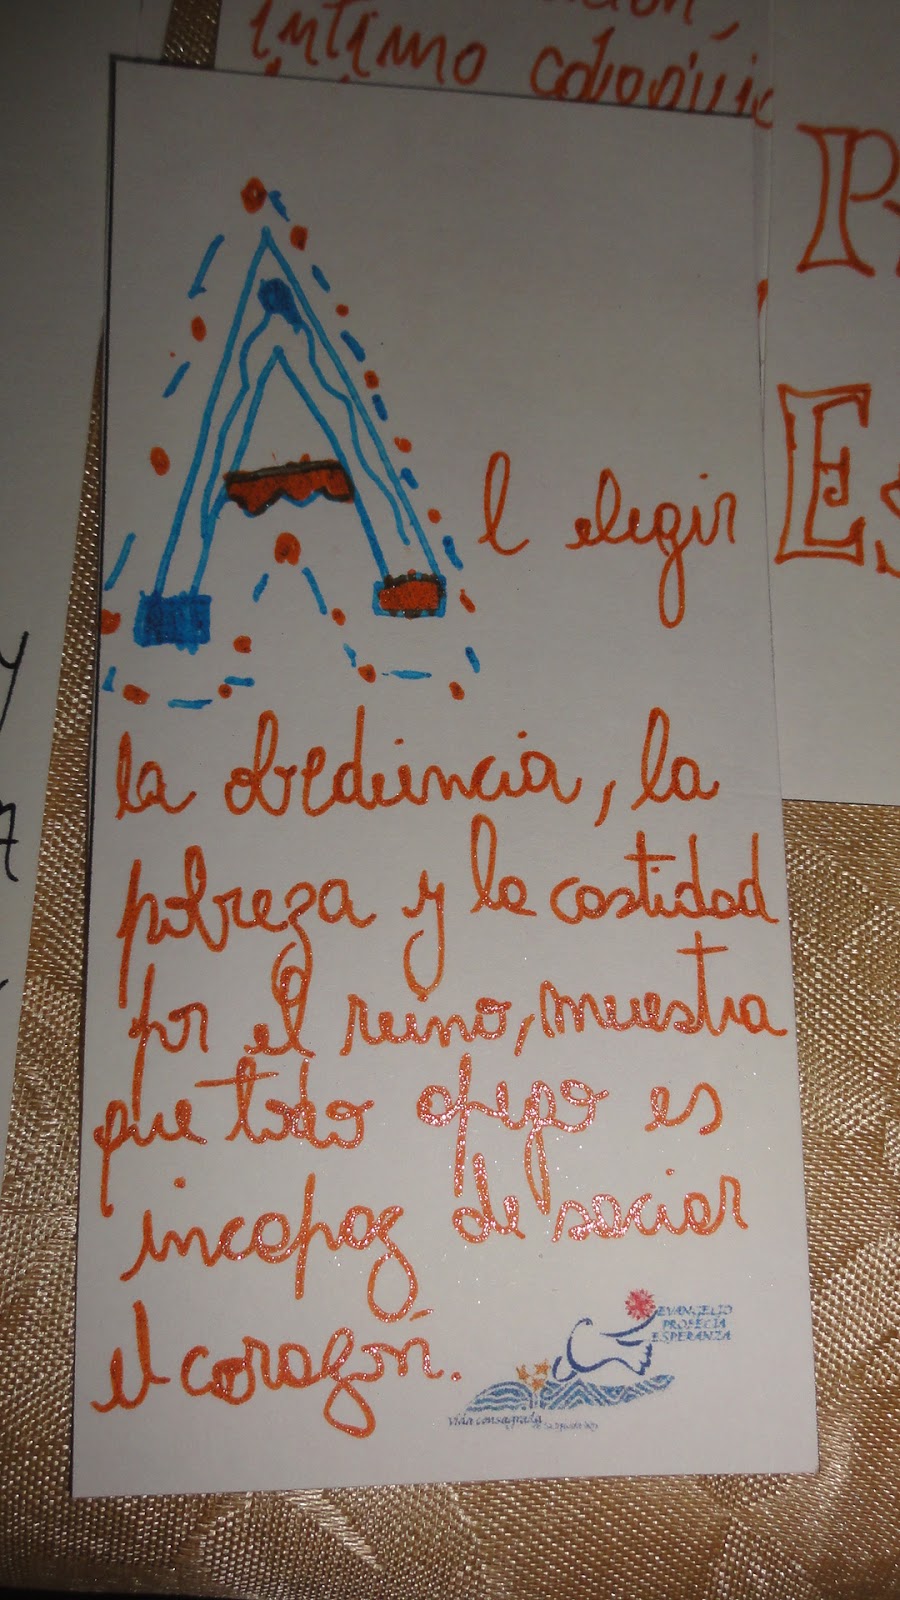 íntimo coloquio
P
Es
y
Al elegir
la obediencia, la
pobreza y la castidad
por el reino, muestra
que todo apego es
incapaz de saciar
el corazón.
EVANGELIO
PROFECIA
ESPERANZA
vida consagrada